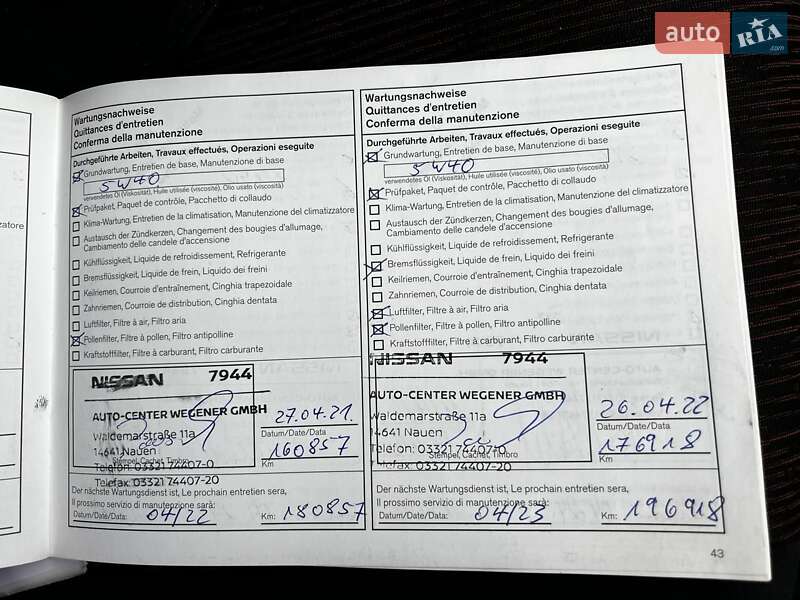 auto RIA.com
Wartungsnachweise
Quittances d'entretien
Conferma della manutenzione
Durchgeführte Arbeiten, Travaux effectués, Operazioni eseguite
Grundwartung, Entretien de base, Manutenzione di base
5W40
verwendetes Öl (Viskosität), Huile utilisée (viscosité), Olio usato (viscosità)
Prüfpaket, Paquet de contrôle, Pacchetto di collaudo
Klima-Wartung, Entretien de la climatisation, Manutenzione del climatizzatore
Austausch der Zündkerzen, Changement des bougies d'allumage,
Cambiamento delle candele d'accensione
Kühlflüssigkeit, Liquide de refroidissement, Refrigerante
Bremsflüssigkeit, Liquide de frein, Liquido dei freini
Keilriemen, Courroie d'entraînement, Cinghia trapezoidale
Zahnriemen, Courroie de distribution, Cinghia dentata
Luftfilter, Filtre à air, Filtro aria
Pollenfilter, Filtre à pollen, Filtro antipolline
Kraftstofffilter, Filtre à carburant, Filtro carburante
NISSAN 7944
AUTO-CENTER WEGENER GMBH
Waldemarstraße 11a
14641 Nauen
Telefon: 03321 74407-0
Telefax: 03321 74407-20
Stempel, Cachet, Timbro
27.04.21
Datum/Date/Data
160857
Km
Der nächste Wartungsdienst ist, Le prochain entretien sera,
Il prossimo servizio di manutenzione sarà:
Datum/Date/Data: 04/22 Km: 180857
Wartungsnachweise
Quittances d'entretien
Conferma della manutenzione
Durchgeführte Arbeiten, Travaux effectués, Operazioni eseguite
Grundwartung, Entretien de base, Manutenzione di base
5W40
verwendetes Öl (Viskosität), Huile utilisée (viscosité), Olio usato (viscosità)
Prüfpaket, Paquet de contrôle, Pacchetto di collaudo
Klima-Wartung, Entretien de la climatisation, Manutenzione del climatizzatore
Austausch der Zündkerzen, Changement des bougies d'allumage,
Cambiamento delle candele d'accensione
Kühlflüssigkeit, Liquide de refroidissement, Refrigerante
Bremsflüssigkeit, Liquide de frein, Liquido dei freini
Keilriemen, Courroie d'entraînement, Cinghia trapezoidale
Zahnriemen, Courroie de distribution, Cinghia dentata
Luftfilter, Filtre à air, Filtro aria
Pollenfilter, Filtre à pollen, Filtro antipolline
Kraftstofffilter, Filtre à carburant, Filtro carburante
NISSAN 7944
AUTO-CENTER WEGENER GMBH
Waldemarstraße 11a
14641 Nauen
Telefon: 03321 74407-0
Telefax: 03321 74407-20
Stempel, Cachet, Timbro
26.04.22
Datum/Date/Data
176918
Km
Der nächste Wartungsdienst ist, Le prochain entretien sera,
Il prossimo servizio di manutenzione sarà:
Datum/Date/Data: 04/23 Km: 196918
43